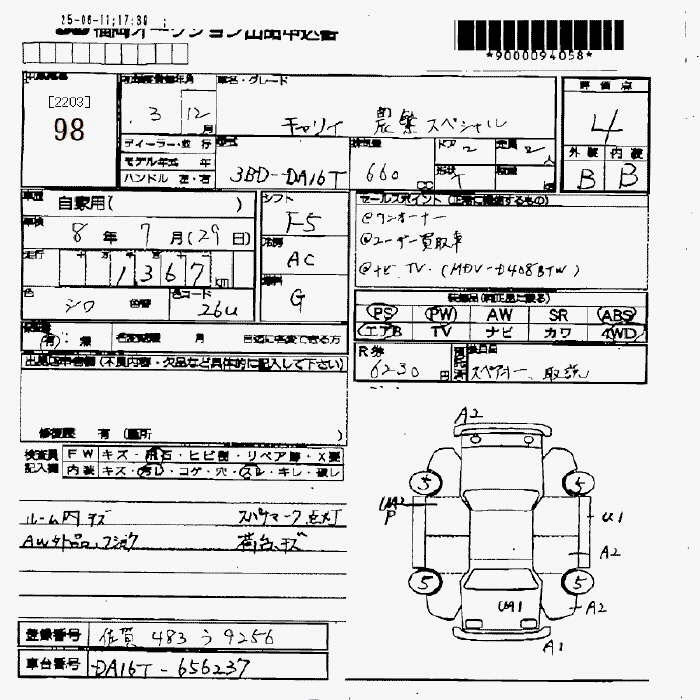 25-06-11;17:39 ;
福岡オークション出品申込書
*9000094058*
出品番号
[2203]
98
初度登録年月
3 12月
車名・グレード
キャリイ 農繁スペシャル
評価点
4
ディーラー・並行
モデル年式 年
ハンドル 左・右
型式
3BD-DA16T
排気量
660 cc
ドア 2
形状 T
定員 2人
積載
外装 内装
B B
車歴 自家用( )
車検 8年 7月(29日)
走行 十 万 千
1 3 6 7 km
色 シロ 色替
色コード 26U
シフト F5
冷房 AC
燃料 G
セールスポイント(正常に機能するもの)
@ワンオーナー
@ユーザー買取車
@ナビ TV. (MDV-D408BTW)
装備品(純正品に限る)
PS PW AW SR ABS
エアB TV ナビ カワ 4WD
有・無
名義変更期限 月
R券
6230円
後日品
スペアキー、取説
出品店申告欄(不具内容・欠品など具体的に記入して下さい)
修復歴 有(箇所 )
検査員記入欄
FW キズ・飛石・ヒビ割・リペア跡・X要
内装 キズ・汚レ・コゲ・穴・スレ・キレ・破レ
ルーム内キズ スパナマーク点灯
AW社外品、フショク 荷台、キズ
A2
5 5
UA2
P
U1
A2
5 5
UA1
A2
A1
登録番号 佐賀 483 う 9256
車台番号 DA16T-656237